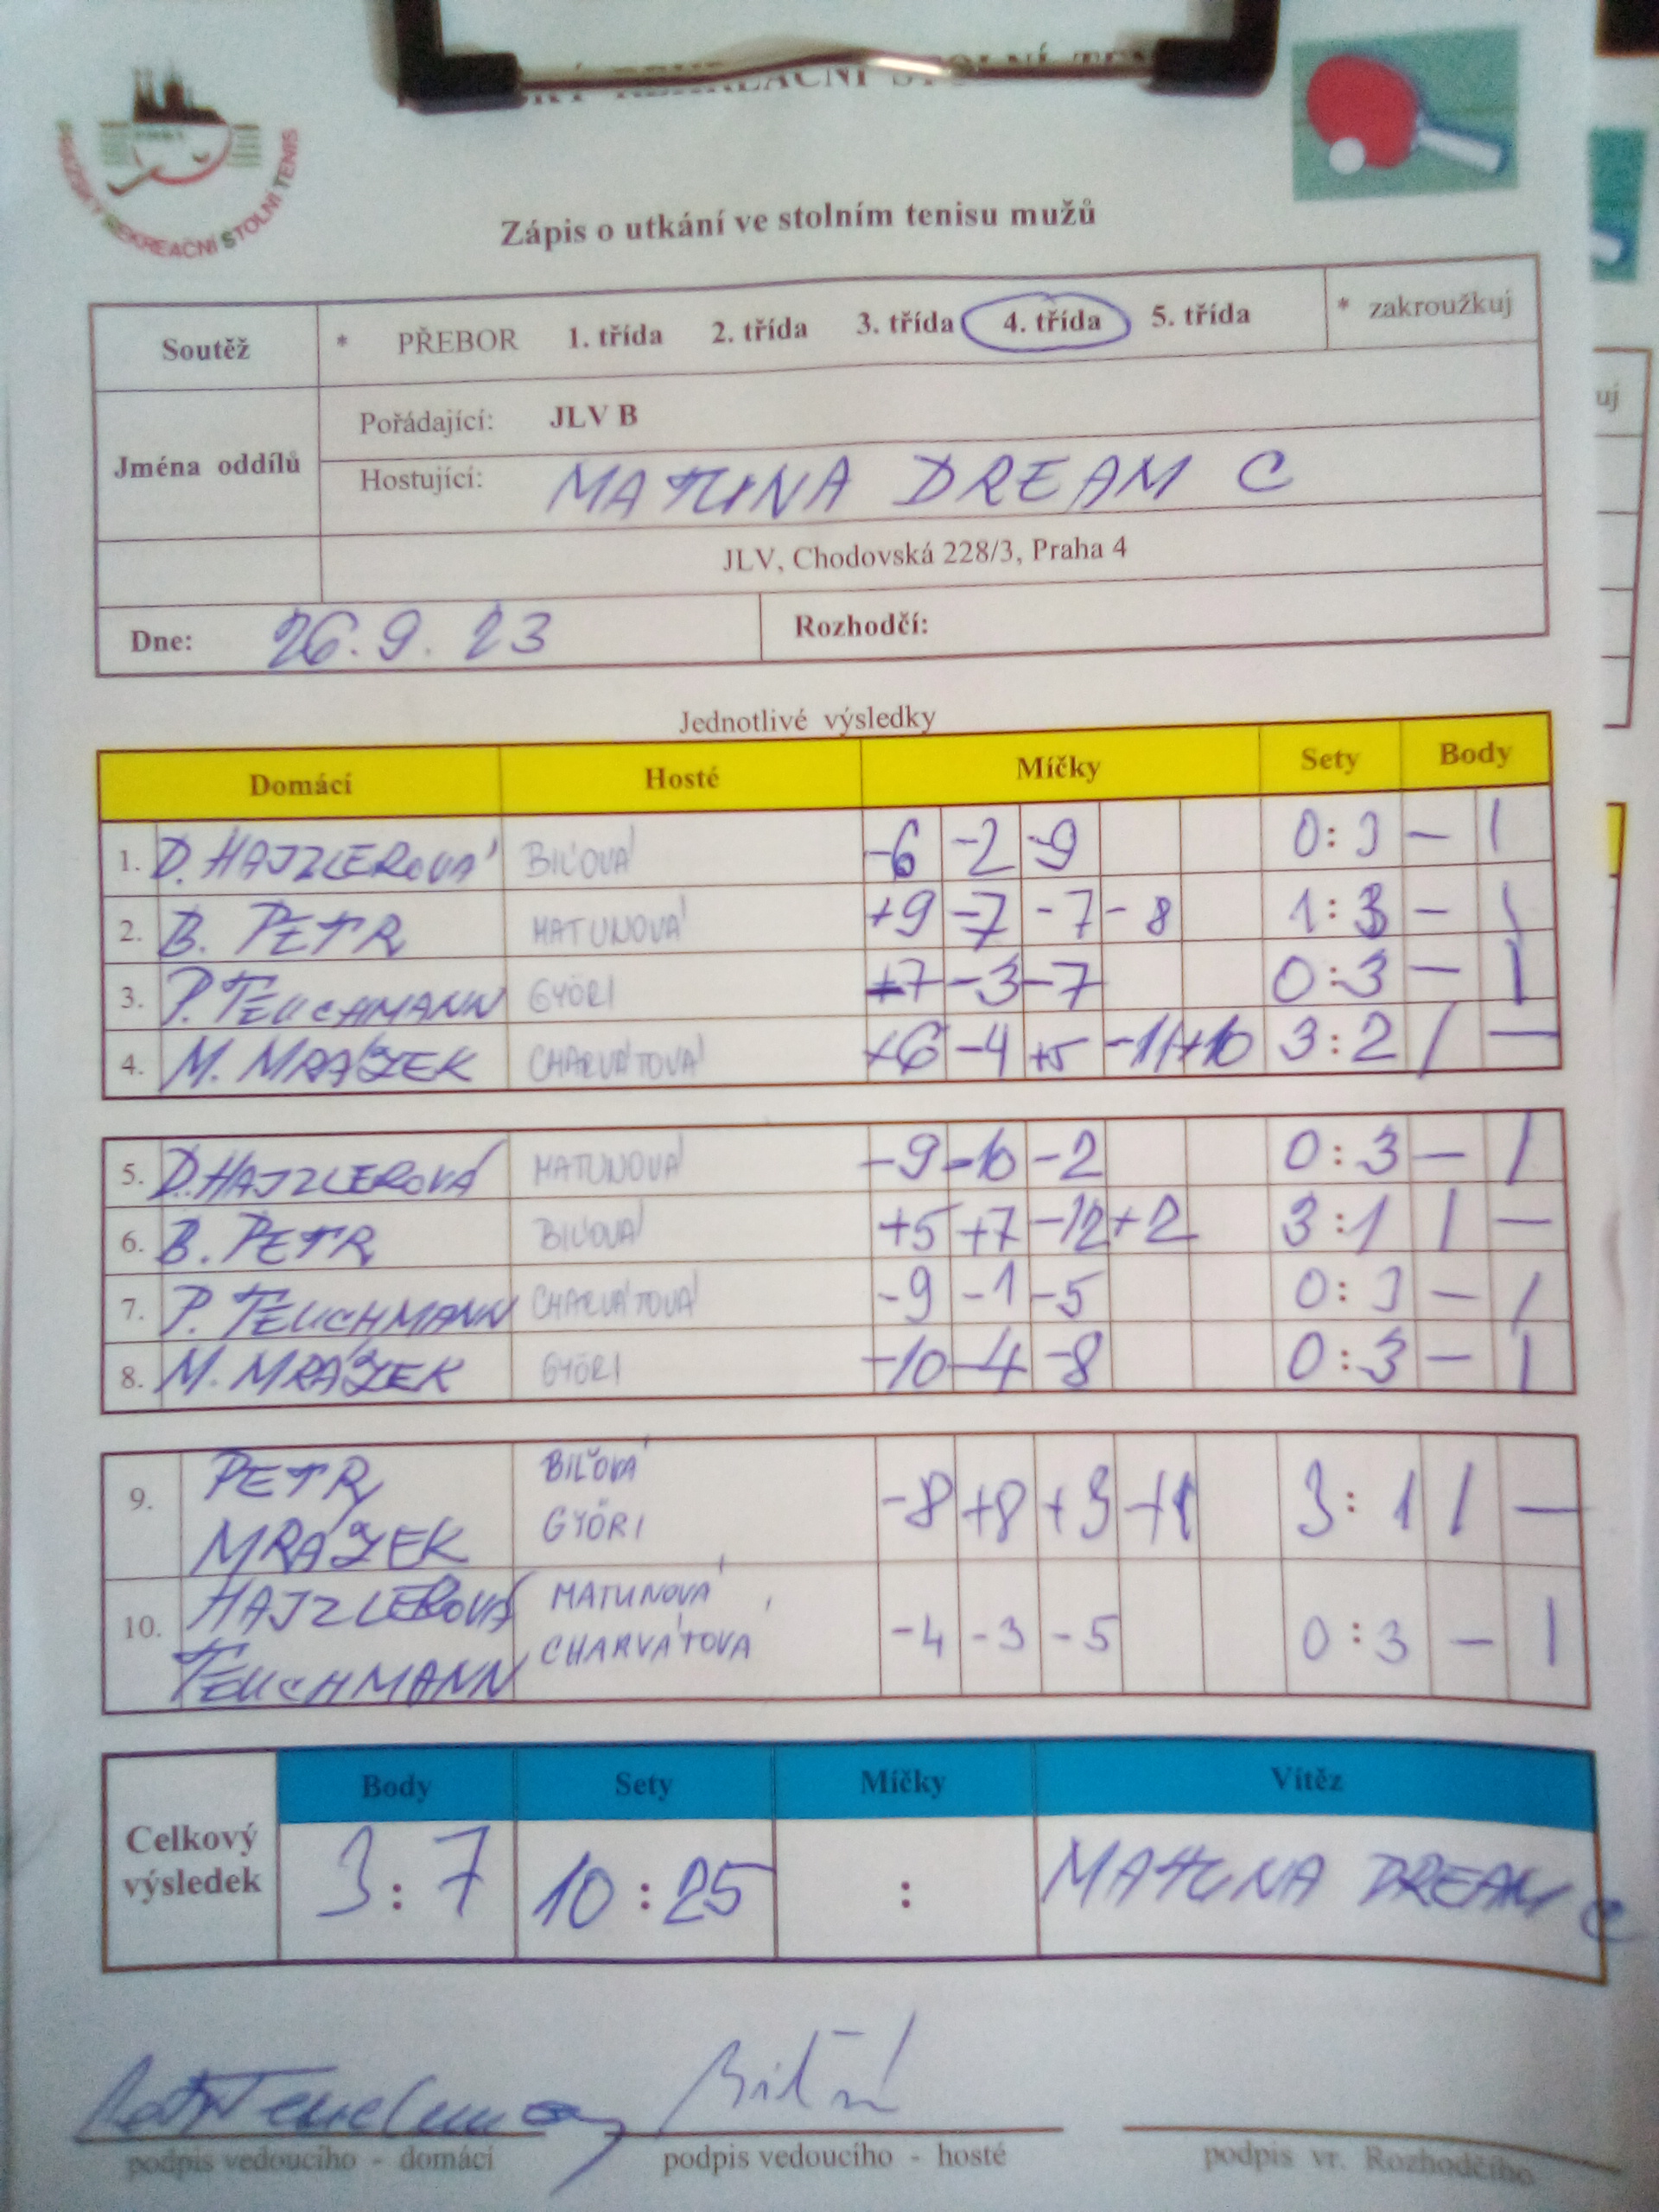 REKREAČNÍ STOLNÍ
PRAŽSKÝ REKREAČNÍ STOLNÍ TENIS
Zápis o utkání ve stolním tenisu mužů
Soutěž * PŘEBOR 1. třída 2. třída 3. třída 4. třída 5. třída * zakroužkuj
Jména oddílů
Pořádající: JLV B
Hostující: MATUNA DREAM C
JLV, Chodovská 228/3, Praha 4
Dne: 26.9.23 Rozhodčí:
Jednotlivé výsledky
Domácí Hosté Míčky Sety Body
1. D. HAJZLEROVÁ BILOVÁ -6 -2 -9 0:3 — 1
2. B. PETR MATUNOVÁ +9 -7 -7 -8 1:3 — 1
3. P. TEUCHMANN GYÖRI -7 -3 -7 0:3 — 1
4. M. MRÁZEK CHARVÁTOVÁ +6 -4 +5 -11 +10 3:2 1 —
5. D. HAJZLEROVÁ MATUNOVÁ -9 -10 -2 0:3 — 1
6. B. PETR BILOVÁ +5 +7 -12 +2 3:1 1 —
7. P. TEUCHMANN CHARVÁTOVÁ -9 -1 -5 0:3 — 1
8. M. MRÁZEK GYÖRI -10 -4 -8 0:3 — 1
9. PETR BILOVÁ -8 +8 +9 3:1 1 —
MRÁZEK GYÖRI
10. HAJZLEROVÁ MATUNOVÁ -4 -3 -5 0:3 — 1
TEUCHMANN CHARVÁTOVÁ
Body Sety Míčky Vítěz
Celkový výsledek 3:7 10:25 : MATUNA DREAM C
podpis vedoucího - domácí podpis vedoucího - hosté podpis vr. Rozhodčího
uj